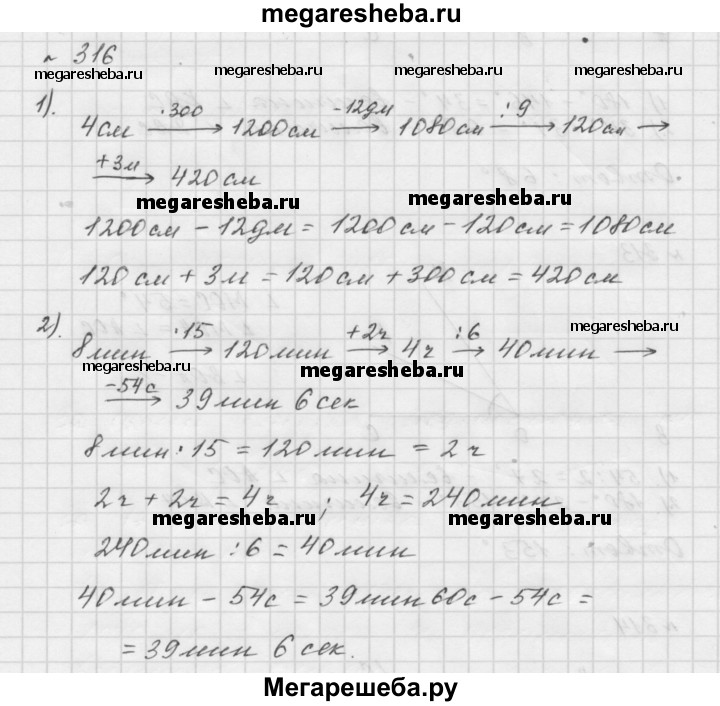 megaresheba.ru
№ 316
megaresheba.ru megaresheba.ru megaresheba.ru
1). 4см ·300→ 1200см -12дм→ 1080см :9→ 120см →
+3м→ 420см
megaresheba.ru megaresheba.ru
1200см - 12дм = 1200см - 120см = 1080см
120см + 3м = 120см + 300см = 420см
2). 8мин ·15→ 120мин +2ч→ 4ч :6→ 40мин →
megaresheba.ru
megaresheba.ru megaresheba.ru
-54с→ 39мин 6сек
8мин · 15 = 120мин = 2ч
2ч + 2ч = 4ч ; 4ч = 240мин
megaresheba.ru megaresheba.ru
240мин : 6 = 40мин
40мин - 54с = 39мин 60с - 54с =
= 39мин 6 сек.
Мегарешеба.ру